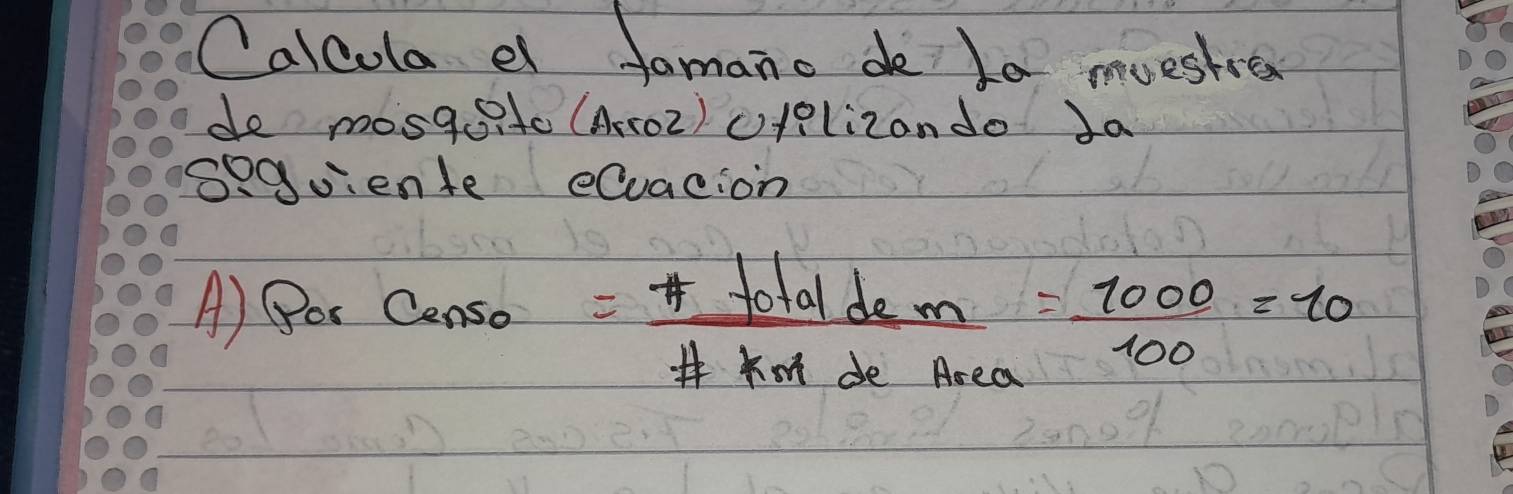 Calcula el tamaño de la muestra
de mosquito (Arroz) utilizando la
siguiente ecuación
A) Por Censo = # total de m = 1000 = 10
# km de Area 100